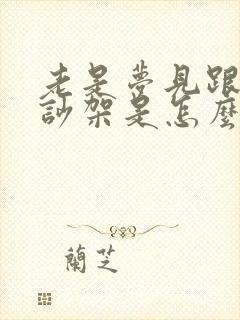 老是夢見跟
訬架是怎麼
蘭芝